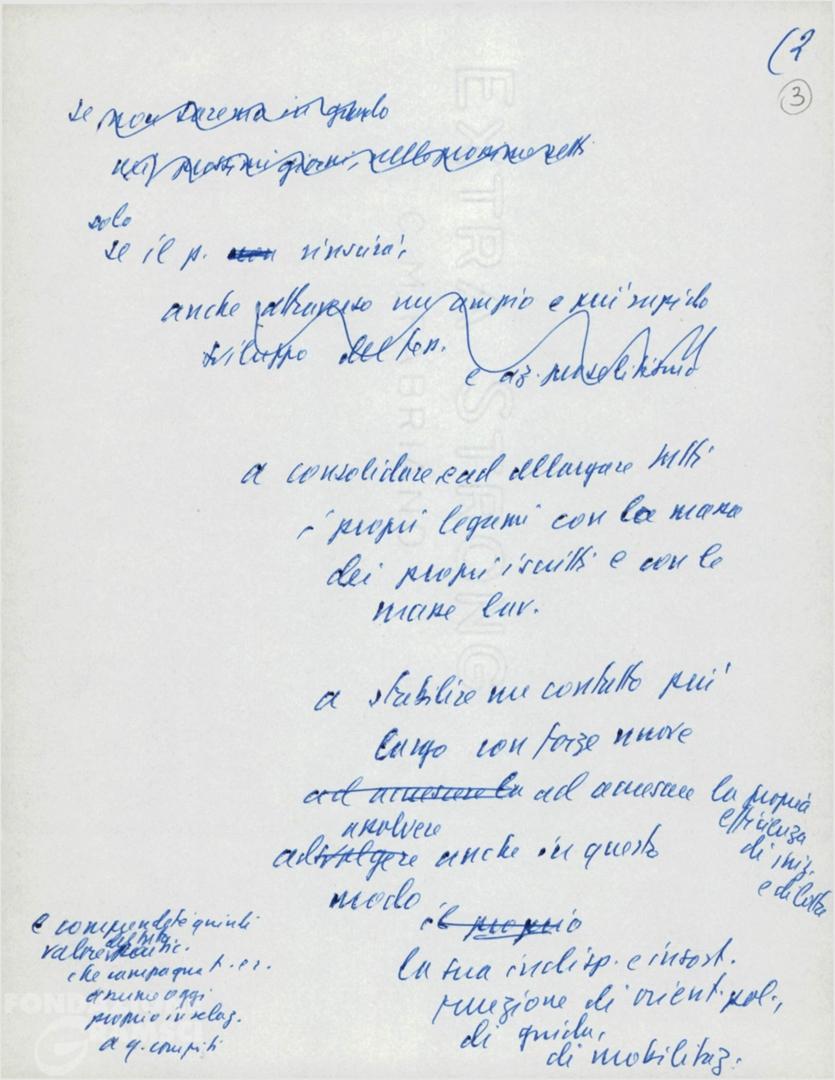 (2
3
se non saremo in grado
nei prossimi giorni, nelle prossime sett.
solo
se il p. non riuscirà,
anche attraverso un ampio e più rapido
sviluppo del tess.
e az. proselitismo
a consolidare e ad allargare tutti
i propri legami con la massa
dei propri iscritti e con le
masse lav.
a stabilire un contatto più
largo con forze nuove
ad accrescere la ad accrescere la propria
efficienza
di iniz.
e di lotta
assolvere
ad svolgere anche in questo
modo
il proprio
la sua indisp. e insost.
funzione di orient. pol.,
di guida,
di mobilitaz.
e comprendete quindi
valore politic.
che campagna t. e r.
assume oggi
proprio in relaz.
a q. compiti
EXTRA STRONG
FONDAZIONE
GRAMSCI